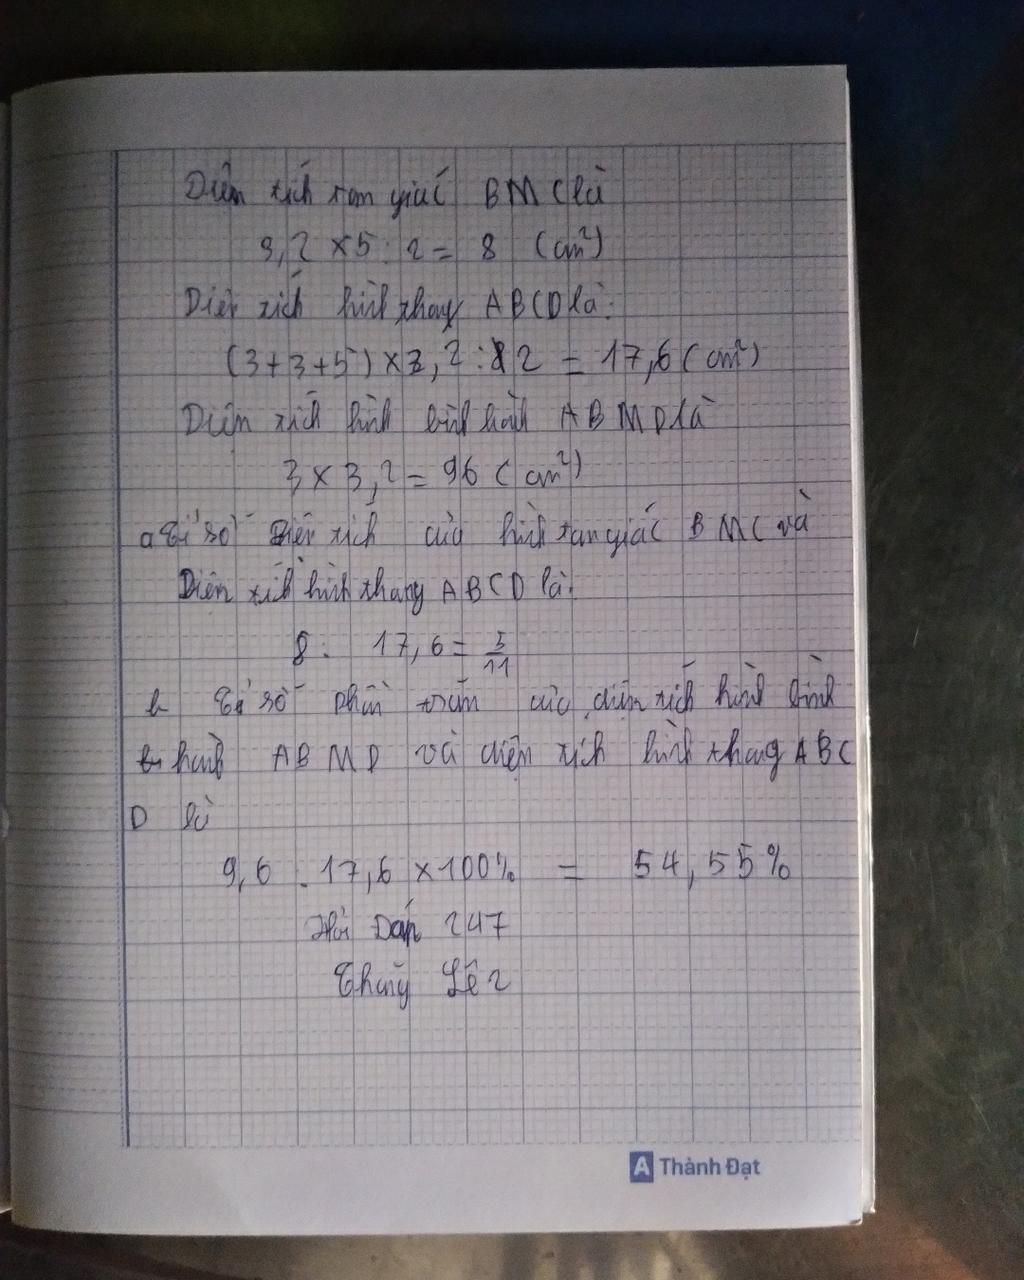 Diện tích tam giác BMC là
3,2 x 5 : 2 = 8 (cm²)
Diện tích hình thang ABCD là:
(3+3+5) x 3,2 : 2 = 17,6 (cm²)
Diện tích hình bình hành ABMD là
3 x 3,2 = 96 (cm²)
a Tỉ số Diện tích của hình tam giác BMC và
Diện tích hình thang ABCD là:
8 : 17,6 = 5/11
b Tỉ số phần trăm của diện tích hình bình
hành ABMD và diện tích hình thang ABC
D là
9,6 : 17,6 x 100% = 54,55%
Hỏi Đáp 247
Thuỳ Lê 2
A Thành Đạt